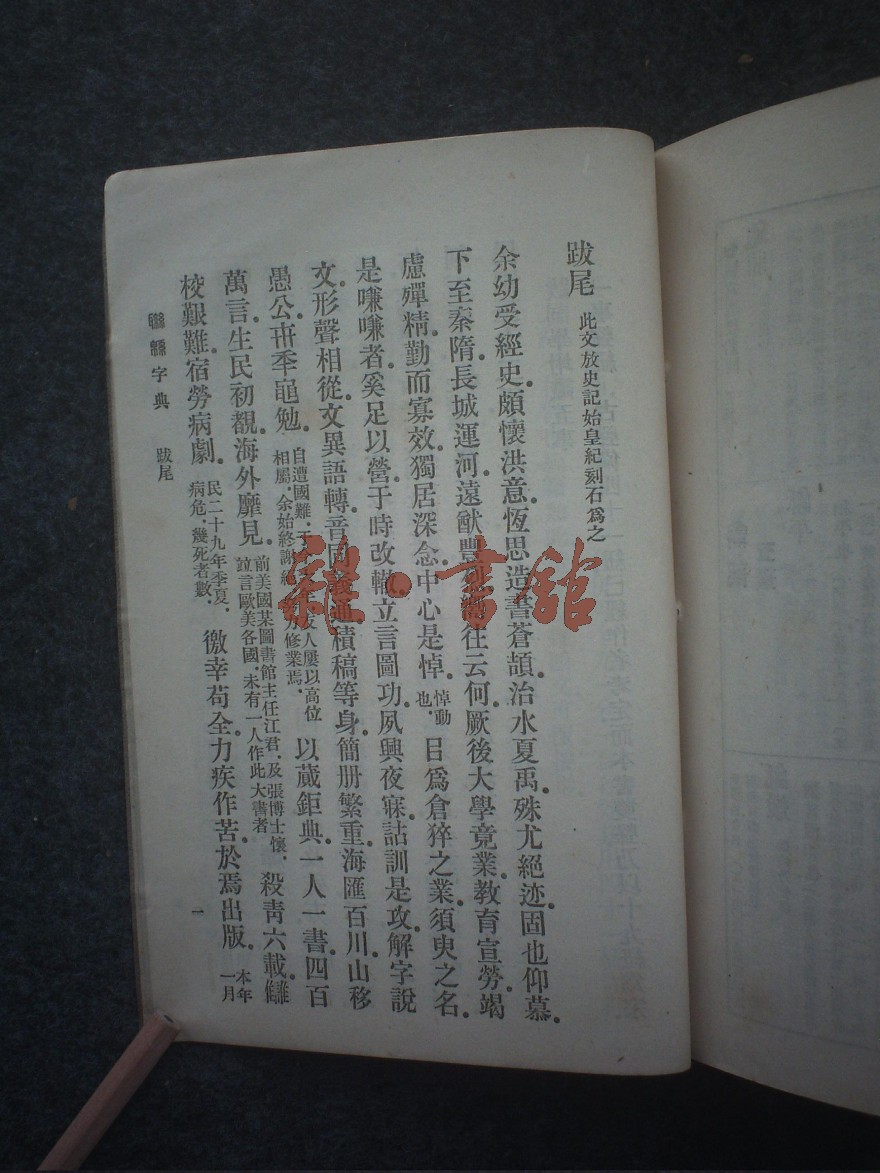 跋尾 此文放史記始皇紀刻石爲之
余幼受經史。頗懷洪意。恆思造書蒼頡。治水夏禹。殊尤絕迹。固也仰慕。
下至秦隋。長城運河。遠猷豐 往云何。厥後大學竟業。教育宣勞。竭
慮殫精。勤而寡效。獨居深念。中心是悼。悼動也。目爲倉猝之業。須臾之名。
是嗛嗛者。奚足以營。于時改轍。立言圖功。夙興夜寐。詁訓是攻。解字說
文。形聲相從。文異語轉。音同義通。積稿等身。簡册繁重。海匯百川。山移
愚公。卅秊黽勉。自遭國難 友人屢以高位相屬。余始終謝 力修業焉。以蕆鉅典。一人一書。四百
萬言。生民初覩。海外靡見。前美國某圖書館主任江君。及張博士懷。竝言歐美各國。未有一人作此大書者 殺靑六載。讎
校艱難。宿勞病劇。民二十九年季夏。病危。幾死者數。徼幸苟全。力疾作苦。於焉出版。本年一月
聯緜字典 跋尾 一
雜·書館